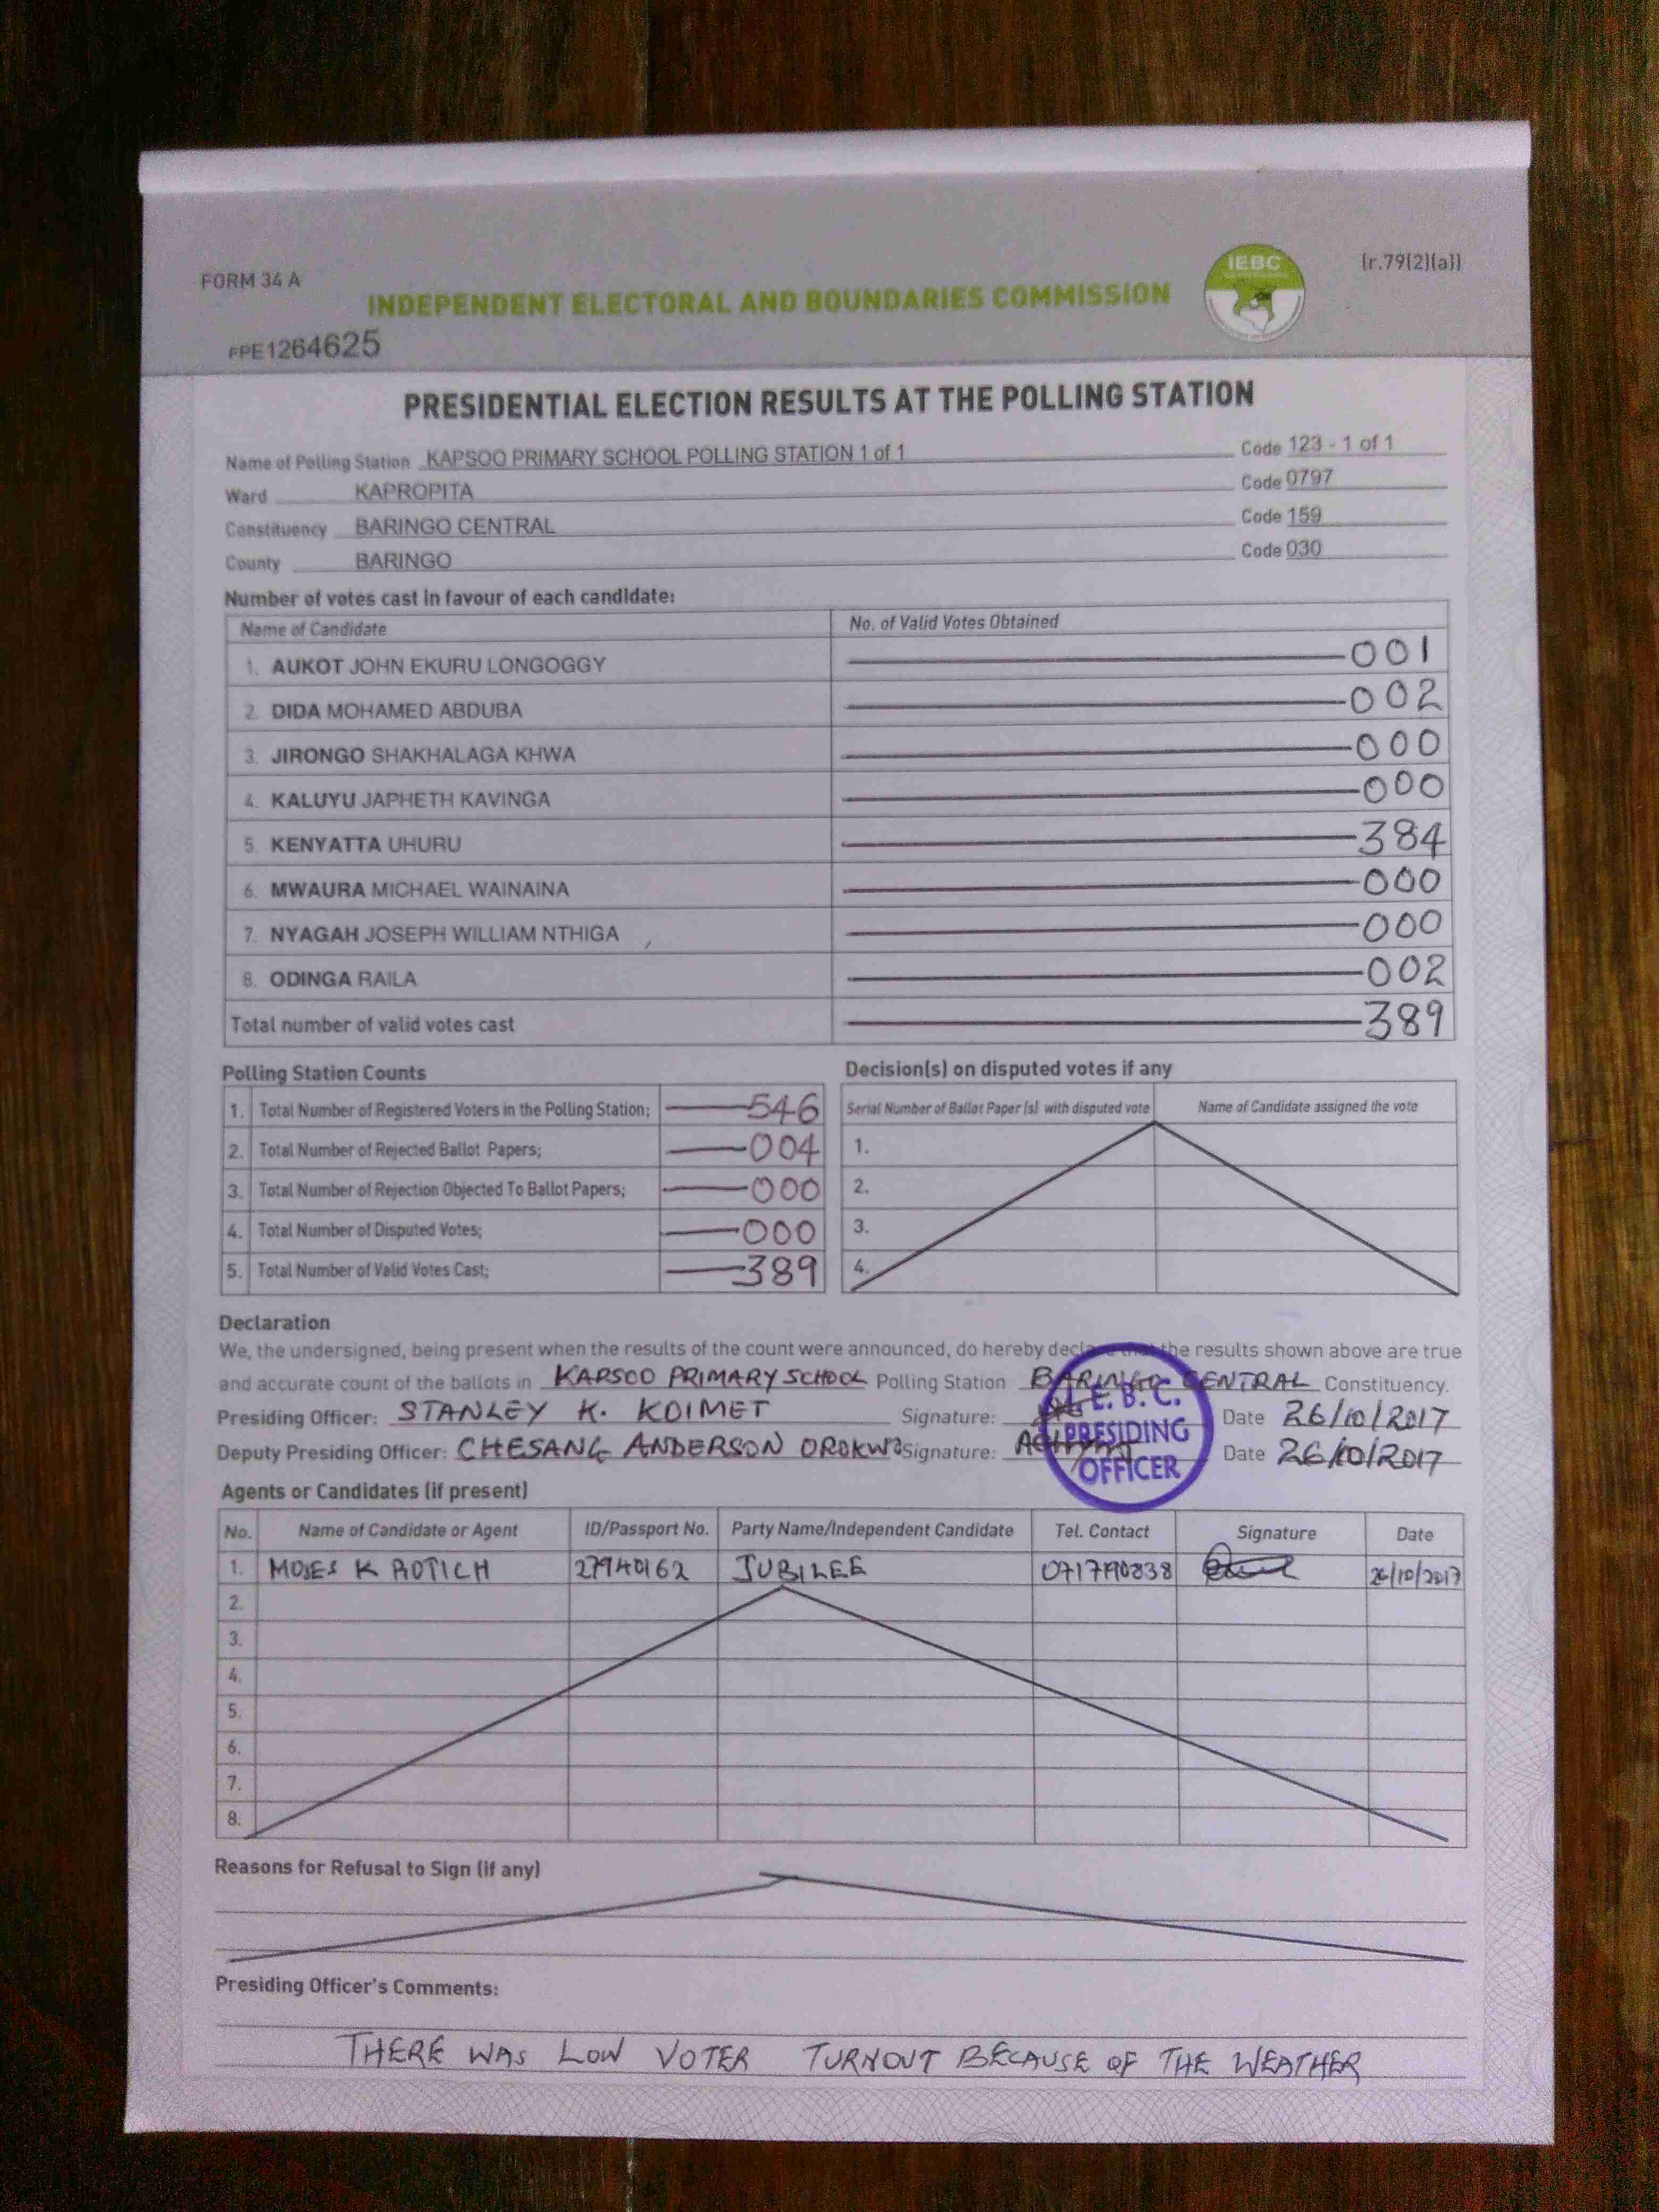 FORM 34 A
IEBC
(r.79(2)(a))
INDEPENDENT ELECTORAL AND BOUNDARIES COMMISSION
FPE1264625
PRESIDENTIAL ELECTION RESULTS AT THE POLLING STATION
Name of Polling Station KAPSOO PRIMARY SCHOOL POLLING STATION 1 of 1 Code 123 - 1 of 1
Ward KAPROPITA Code 0797
Constituency BARINGO CENTRAL Code 159
County BARINGO Code 030
Number of votes cast in favour of each candidate:
Name of Candidate No. of Valid Votes Obtained
1. AUKOT JOHN EKURU LONGOGGY 001
2. DIDA MOHAMED ABDUBA 002
3. JIRONGO SHAKHALAGA KHWA 000
4. KALUYU JAPHETH KAVINGA 000
5. KENYATTA UHURU 384
6. MWAURA MICHAEL WAINAINA 000
7. NYAGAH JOSEPH WILLIAM NTHIGA 000
8. ODINGA RAILA 002
Total number of valid votes cast 389
Polling Station Counts
1. Total Number of Registered Voters in the Polling Station; 546
2. Total Number of Rejected Ballot Papers; 004
3. Total Number of Rejection Objected To Ballot Papers; 000
4. Total Number of Disputed Votes; 000
5. Total Number of Valid Votes Cast; 389
Decision(s) on disputed votes if any
Serial Number of Ballot Paper (s) with disputed vote Name of Candidate assigned the vote
1.
2.
3.
4.
Declaration
We, the undersigned, being present when the results of the count were announced, do hereby declare that the results shown above are true
and accurate count of the ballots in KAPSOO PRIMARY SCHOOL Polling Station BARINGO CENTRAL Constituency.
Presiding Officer: STANLEY K. KOIMET Signature: Date 26/10/2017
Deputy Presiding Officer: CHESANG ANDERSON Signature: Date 26/10/2017
I.E.B.C.
PRESIDING
OFFICER
Agents or Candidates (if present)
No. Name of Candidate or Agent ID/Passport No. Party Name/Independent Candidate Tel. Contact Signature Date
1. MOSES K ROTICH 27940162 JUBILEE 26/10/2017
2.
3.
4.
5.
6.
7.
8.
Reasons for Refusal to Sign (if any)
Presiding Officer's Comments:
THERE WAS LOW VOTER TURNOUT BECAUSE OF THE WEATHER